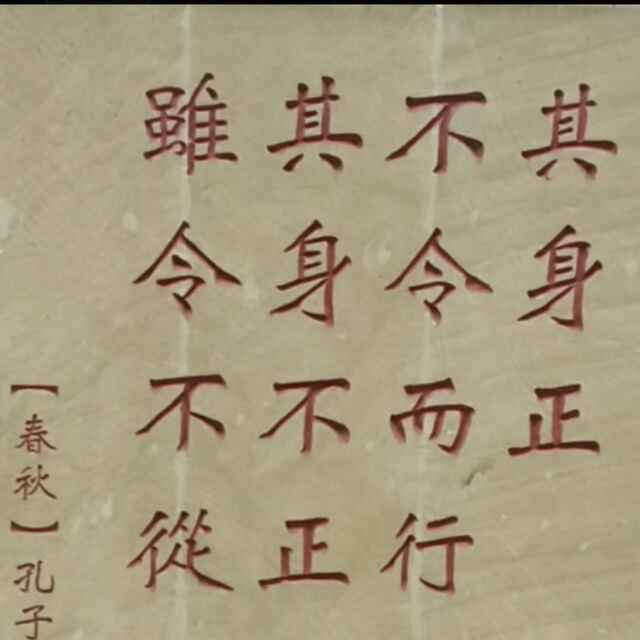 其身正
不令而行
其身不正
雖令不從
【春秋】孔子